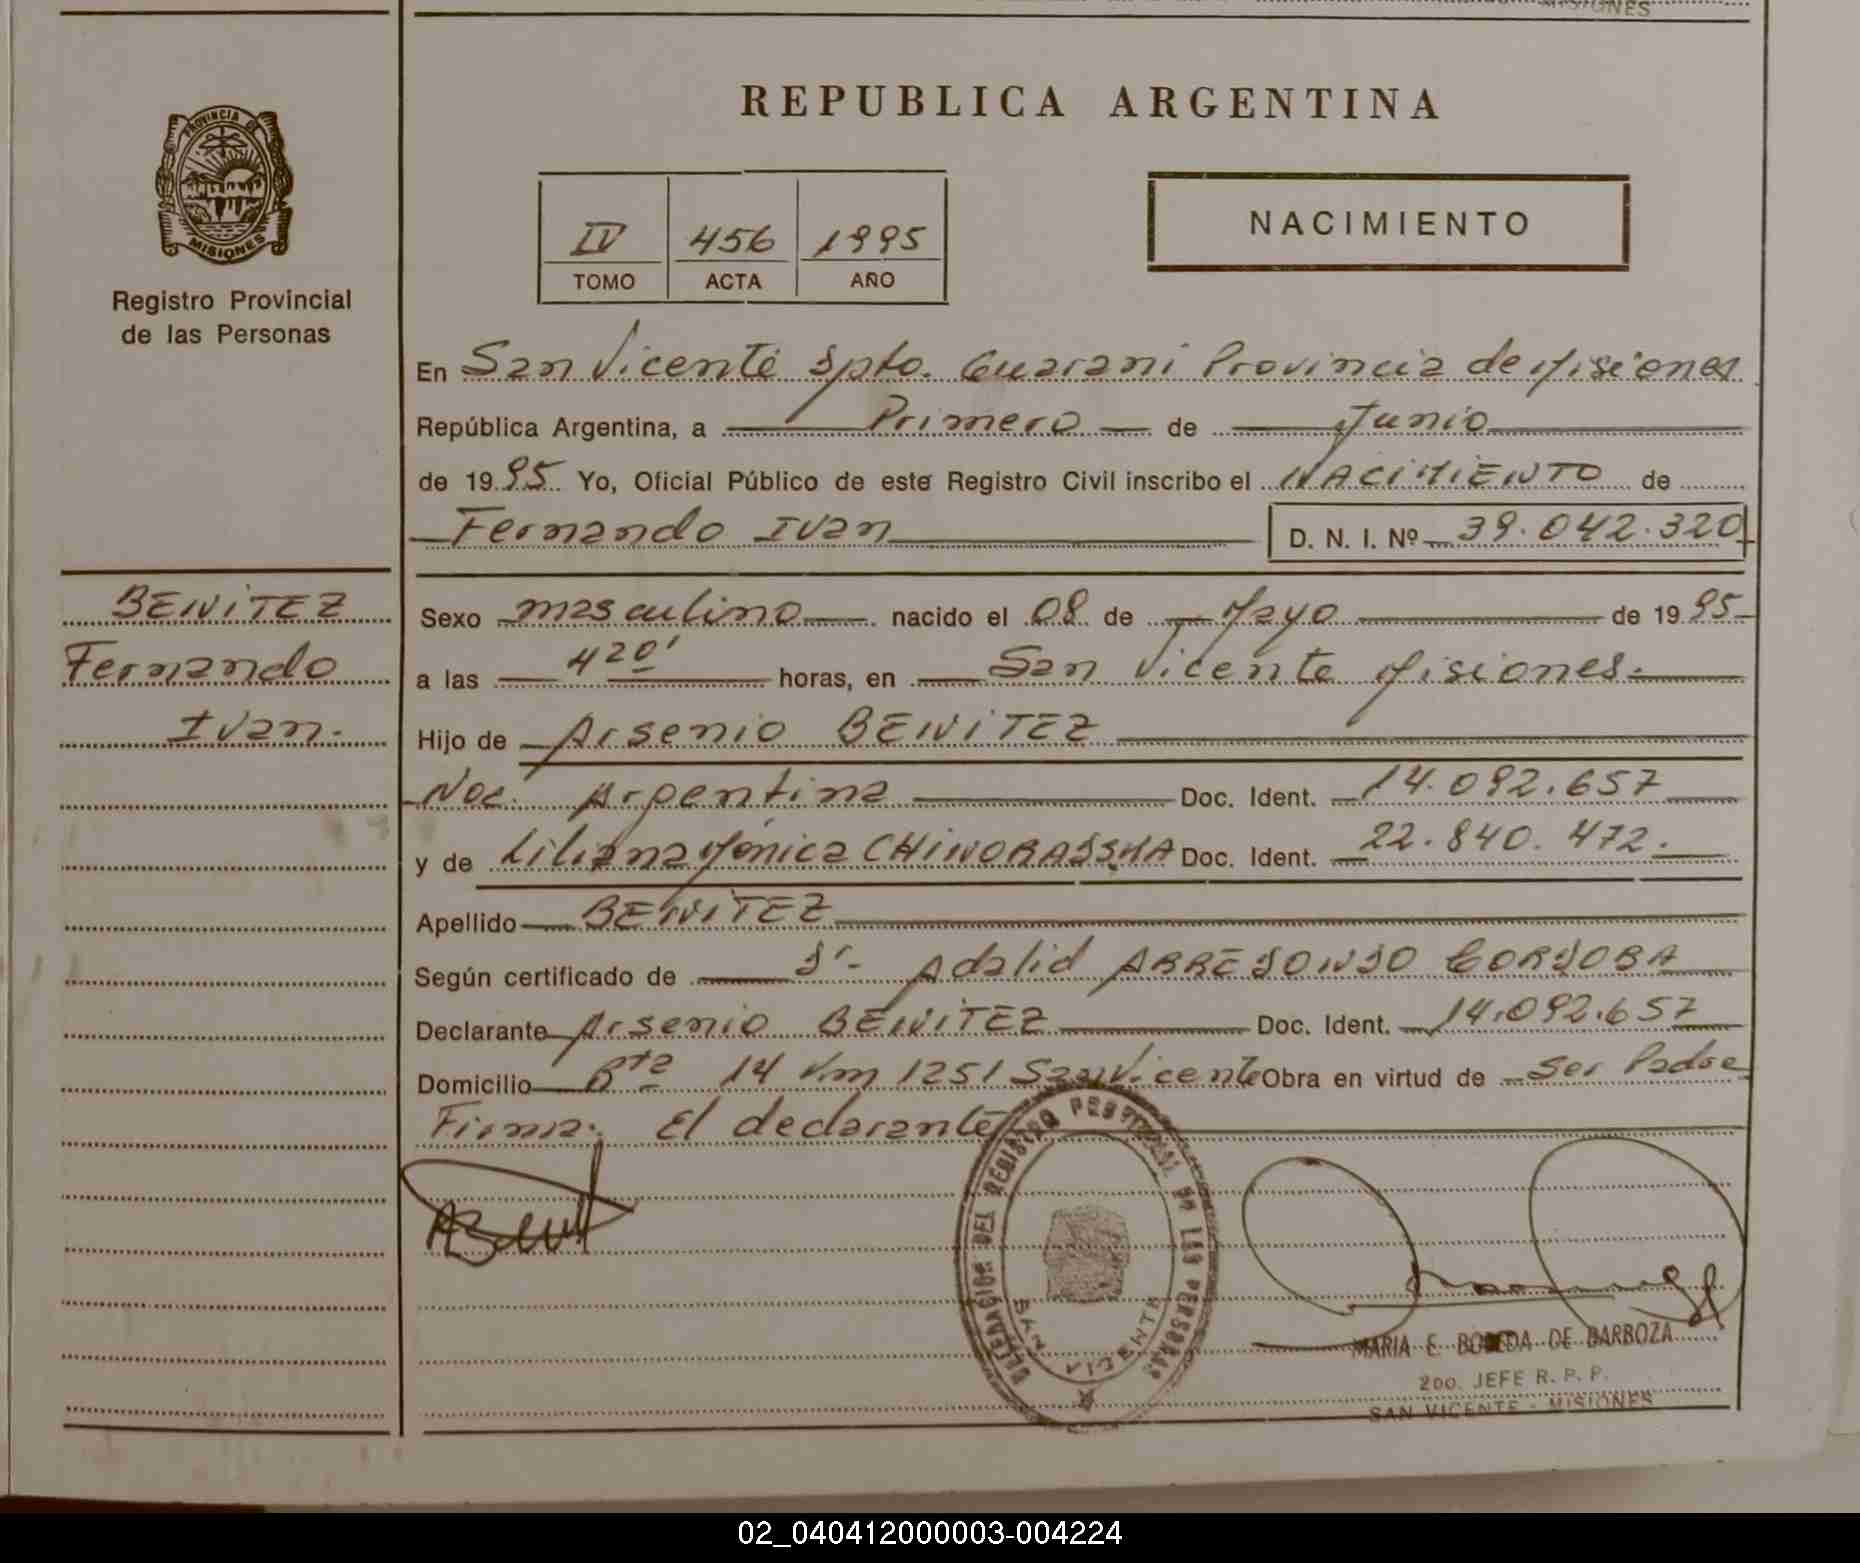 MISIONES
REPUBLICA ARGENTINA
PROVINCIA DE
MISIONES
Registro Provincial
de las Personas
IV 456 1995
TOMO ACTA AÑO
NACIMIENTO
En San Vicente Dpto. Guarani Provincia de Misiones
República Argentina, a Primero de Junio
de 1995 Yo, Oficial Público de este Registro Civil inscribo el NACIMIENTO de
Fernando Ivan D. N. I. Nº 39.042.320
BENITEZ
Fernando
Ivan.
Sexo masculino nacido el 08 de Mayo de 1995
a las 4 20' horas, en San Vicente Misiones.
Hijo de Arsenio BENITEZ
Nac. Argentina Doc. Ident. 14.092.657
y de Liliana Mónica Doc. Ident. 22.840.472.
Apellido BENITEZ
Según certificado de Dr. Adalid ARREDONDO CORDOBA
Declarante Arsenio BENITEZ Doc. Ident. 14.092.657
Domicilio Rta 14 Km 1251 San Vicente Obra en virtud de Ser Padre
Firma: El declarante
ABenit
DELEGACION DEL REGISTRO PROVINCIAL DE LAS PERSONAS
SAN VICENTE
MARIA E. DE BARBOZA
2do. JEFE R. P. P.
SAN VICENTE - MISIONES
02_040412000003-004224